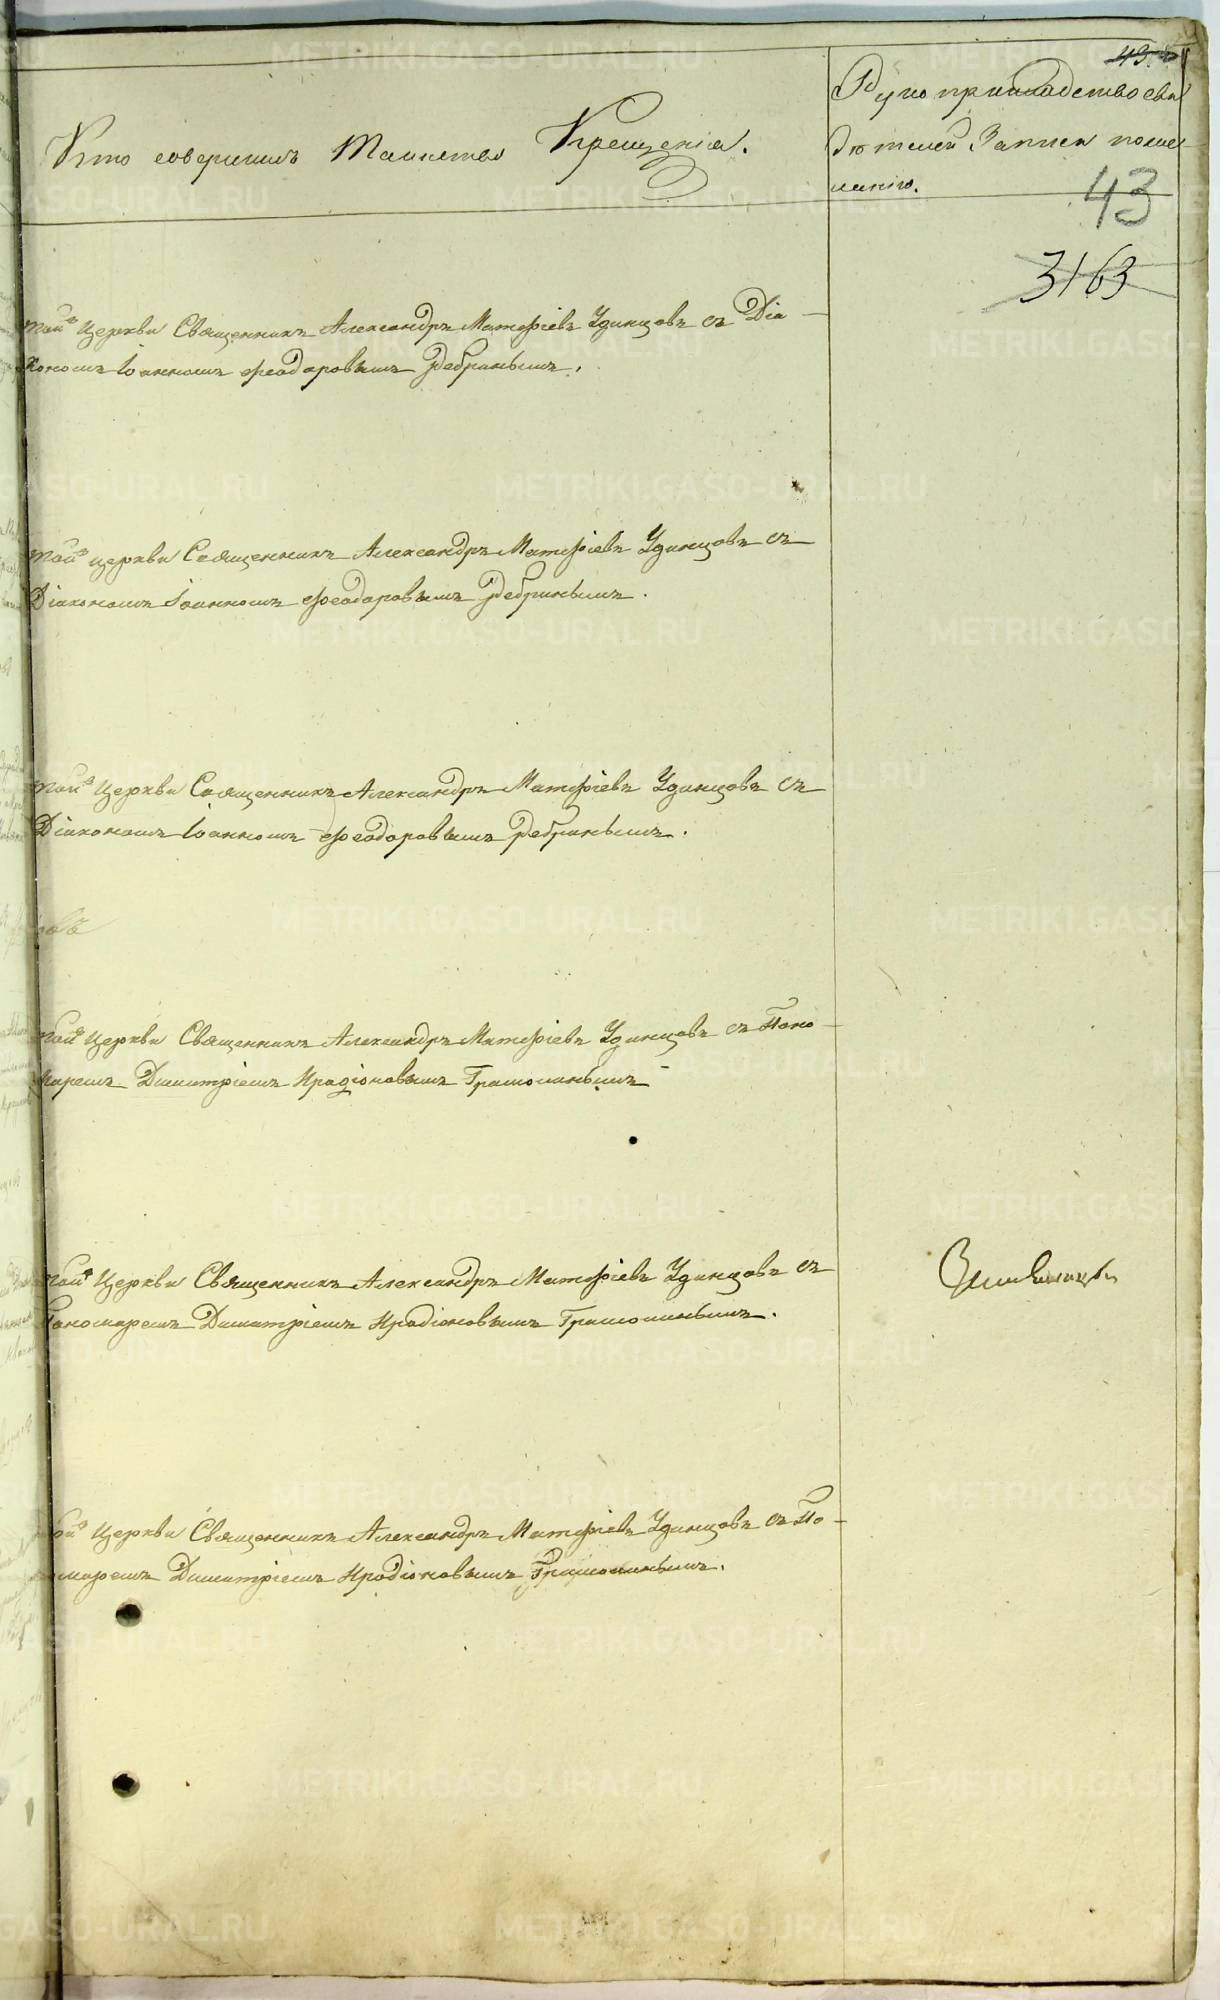 43.
Кто совершилъ Таинство Крещенія.
Рукоприкладство сви
дѣтелей Записи поже
ланію.
43
3163
той же Церкви Священникъ Александръ Матѳіевъ Удинцовъ съ Діа-
кономъ Іоанномъ Ѳеодоровымъ Ребринымъ.
той же церкви Священникъ Александръ Матѳіевъ Удинцовъ съ
Діакономъ Іоанномъ Ѳеодоровымъ Ребринымъ.
той же Церкви Священникъ Александръ Матѳіевъ Удинцовъ съ
Діакономъ Іоанномъ Ѳеодоровымъ Ребринымъ.
той же Церкви Священникъ Александръ Матѳіевъ Удинцовъ съ Поно-
маремъ Димитріемъ Иродіоновымъ Грамолинымъ
той же Церкви Священникъ Александръ Матѳіевъ Удинцовъ съ
Пономаремъ Димитріемъ Иродіоновымъ Грамолинымъ.
той же Церкви Священникъ Александръ Матѳіевъ Удинцовъ съ По-
номаремъ Димитріемъ Иродіоновымъ Грамолинымъ.
METRIKI.GASO-URAL.RU